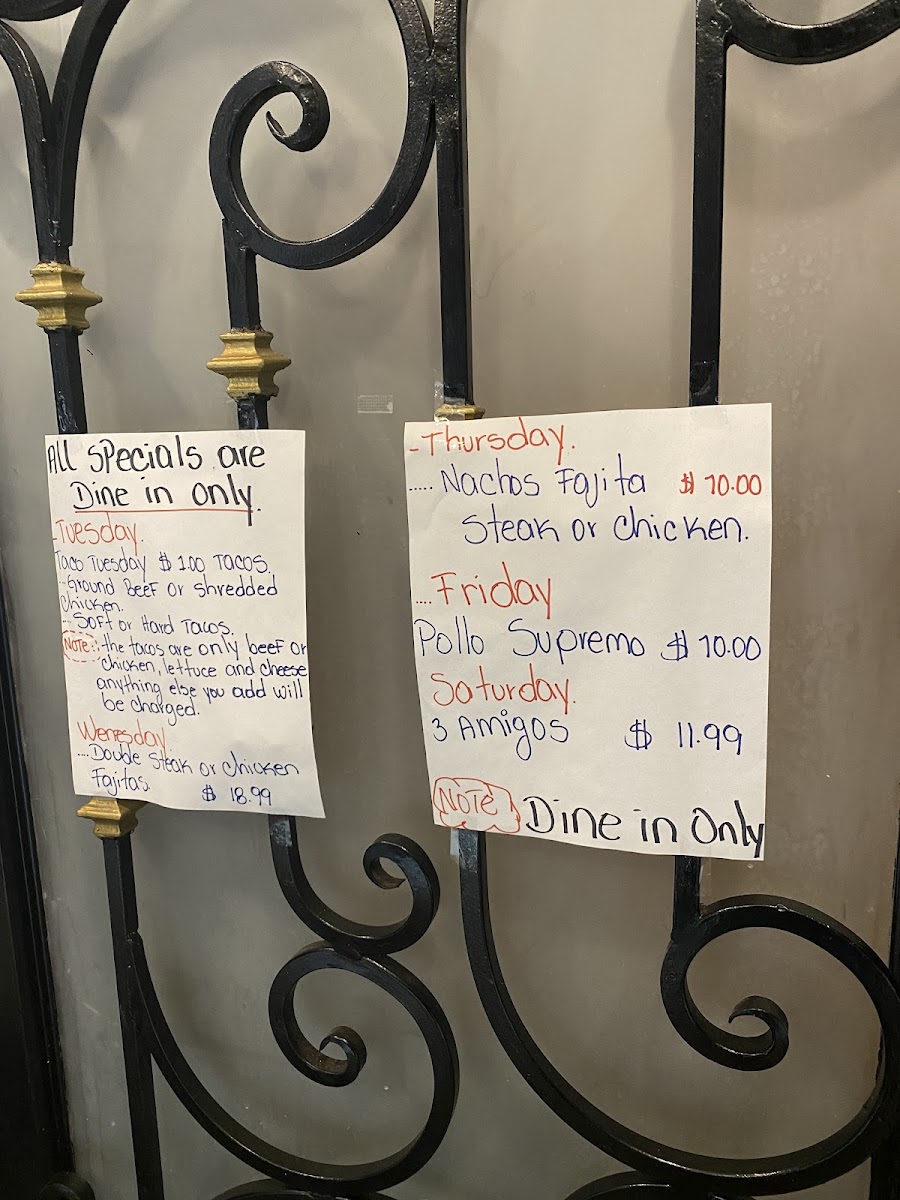 All Specials are
Dine in only.
-Tuesday.
Taco Tuesday $ 1.00 Tacos.
...Ground Beef or shredded
chicken.
...Soft or Hard Tacos.
Note: the tacos are only beef or
chicken, lettuce and cheese
anything else you add will
be charged.
Wenesday.
....Double Steak or chicken
Fajitas. $ 18.99
-Thursday.
..... Nachos Fajita $ 10.00
Steak or chicken.
....Friday
Pollo Supremo $ 10.00
Saturday.
3 Amigos $ 11.99
Note Dine in Only